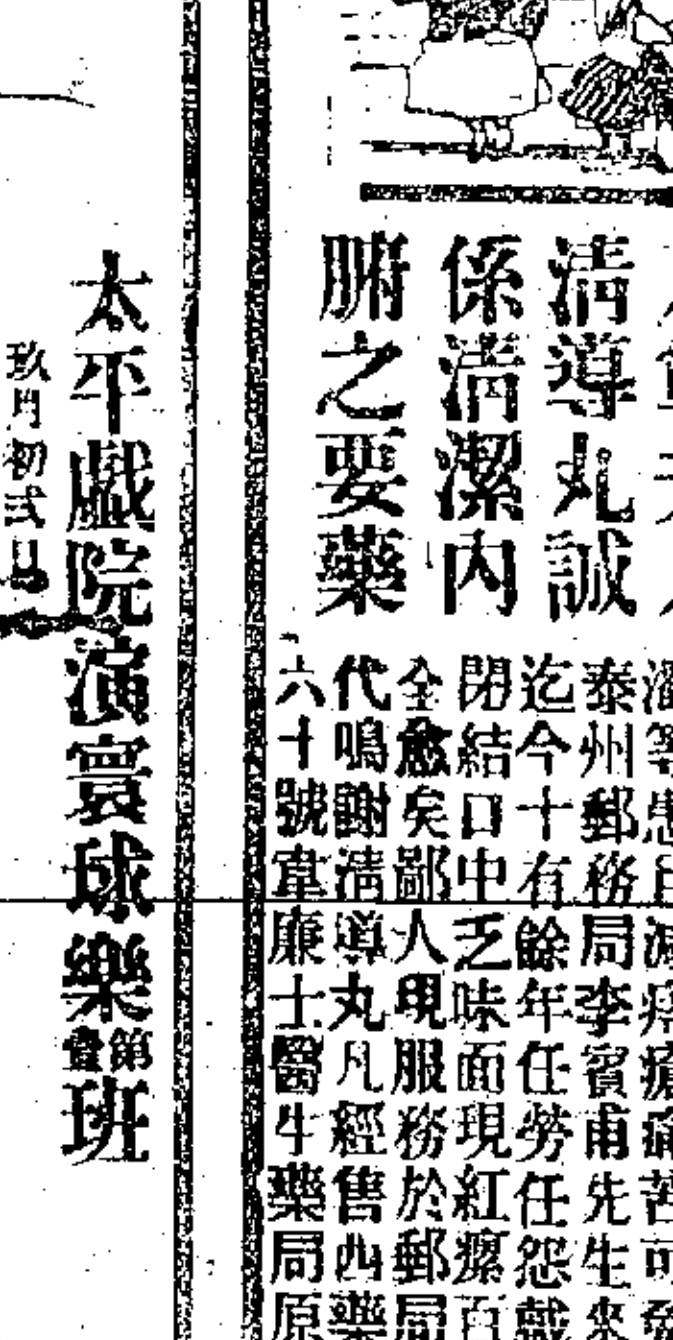 清導丸誠
係清潔內
腑之要藥
泰州郵務局李賓甫先生來
迄今十有餘年任勞任怨戴
閉結口中乏味面現紅瘰百
全愈矣鄙人現服務於郵局
代鳴謝清導丸凡經售西藥
六十號韋廉士醫生藥局原
太平戲院演寰球樂第壹班
玖月初弍日